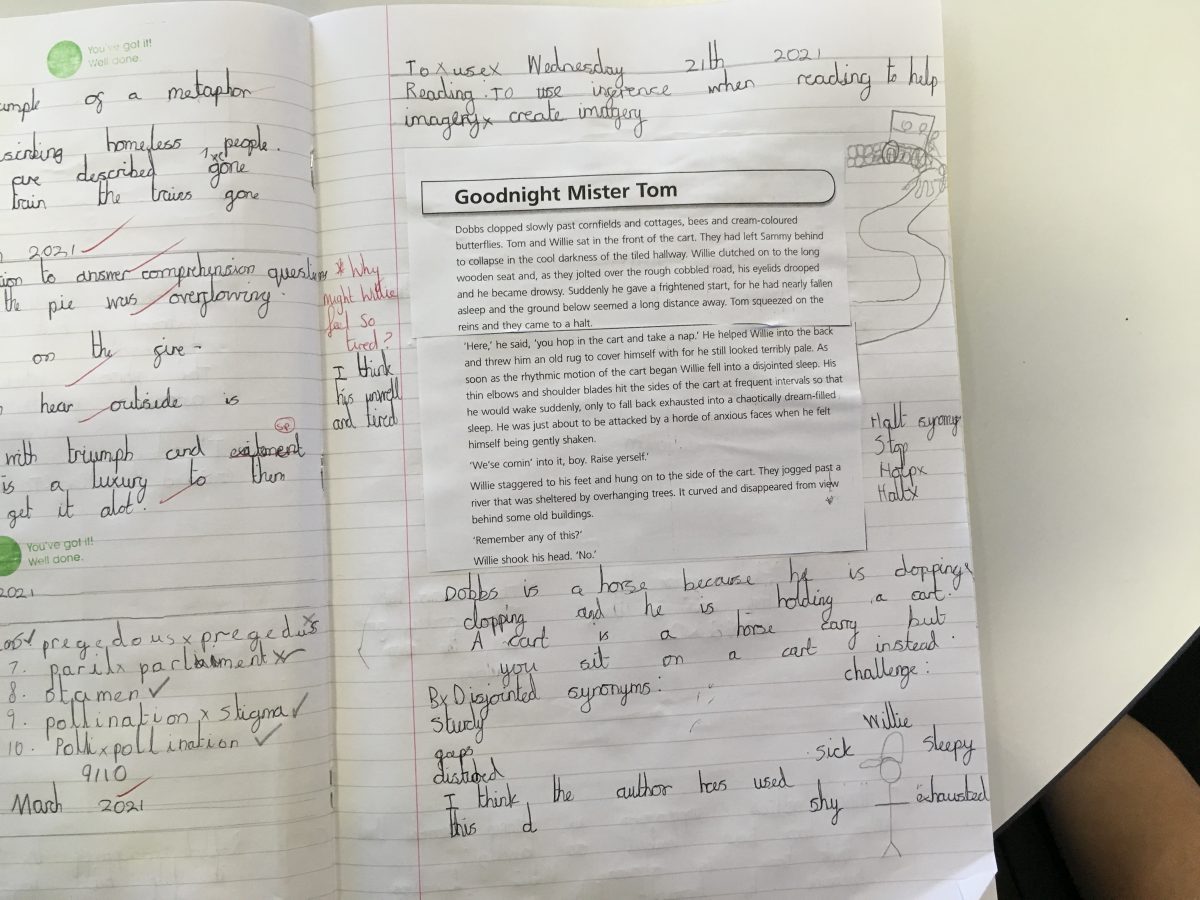 You've got it!
Well done.
ample of a metaphor
homeless people.
are described gone
train the traies gone
2021
ion to answer comprehension questions
the pie was overglowing.
on the gire -
hear outside is
sp
with triumph and exitement
is a luxury to them
get it alot.
You've got it!
Well done.
2021
pregedous x pregedus
7. parilx parliament x
8. Stamen ✓
9. pollination x stigma ✓
10. Polli x pollination ✓
9/10
March 2021
* Why
might Willie
feel so
tired?
I think
his unwell
and tired
To x use x Wednesday 21th 2021
Reading: To use ingerence when reading to help
imagery x create imagery
Goodnight Mister Tom
Dobbs clopped slowly past cornfields and cottages, bees and cream-coloured
butterflies. Tom and Willie sat in the front of the cart. They had left Sammy behind
to collapse in the cool darkness of the tiled hallway. Willie clutched on to the long
wooden seat and, as they jolted over the rough cobbled road, his eyelids drooped
and he became drowsy. Suddenly he gave a frightened start, for he had nearly fallen
asleep and the ground below seemed a long distance away. Tom squeezed on the
reins and they came to a halt.
'Here,' he said, 'you hop in the cart and take a nap.' He helped Willie into the back
and threw him an old rug to cover himself with for he still looked terribly pale. As
soon as the rhythmic motion of the cart began Willie fell into a disjointed sleep. His
thin elbows and shoulder blades hit the sides of the cart at frequent intervals so that
he would wake suddenly, only to fall back exhausted into a chaotically dream-filled
sleep. He was just about to be attacked by a horde of anxious faces when he felt
himself being gently shaken.
'We'se comin' into it, boy. Raise yerself.'
Willie staggered to his feet and hung on to the side of the cart. They jogged past a
river that was sheltered by overhanging trees. It curved and disappeared from view
behind some old buildings.
'Remember any of this?'
Willie shook his head. 'No.'
Halt synomy
Stop
Halpx
Haltx
Dobbs is a horse because he is clopping x
clopping and he is holding a cart.
A cart is a horse carry but
you sit on a cart instead.
B x Disjointed synonyms:
Sturdy
gaps
distibed
I think the author has used
this d
challenge:
Willie
sick
sleepy
shy
exhausted